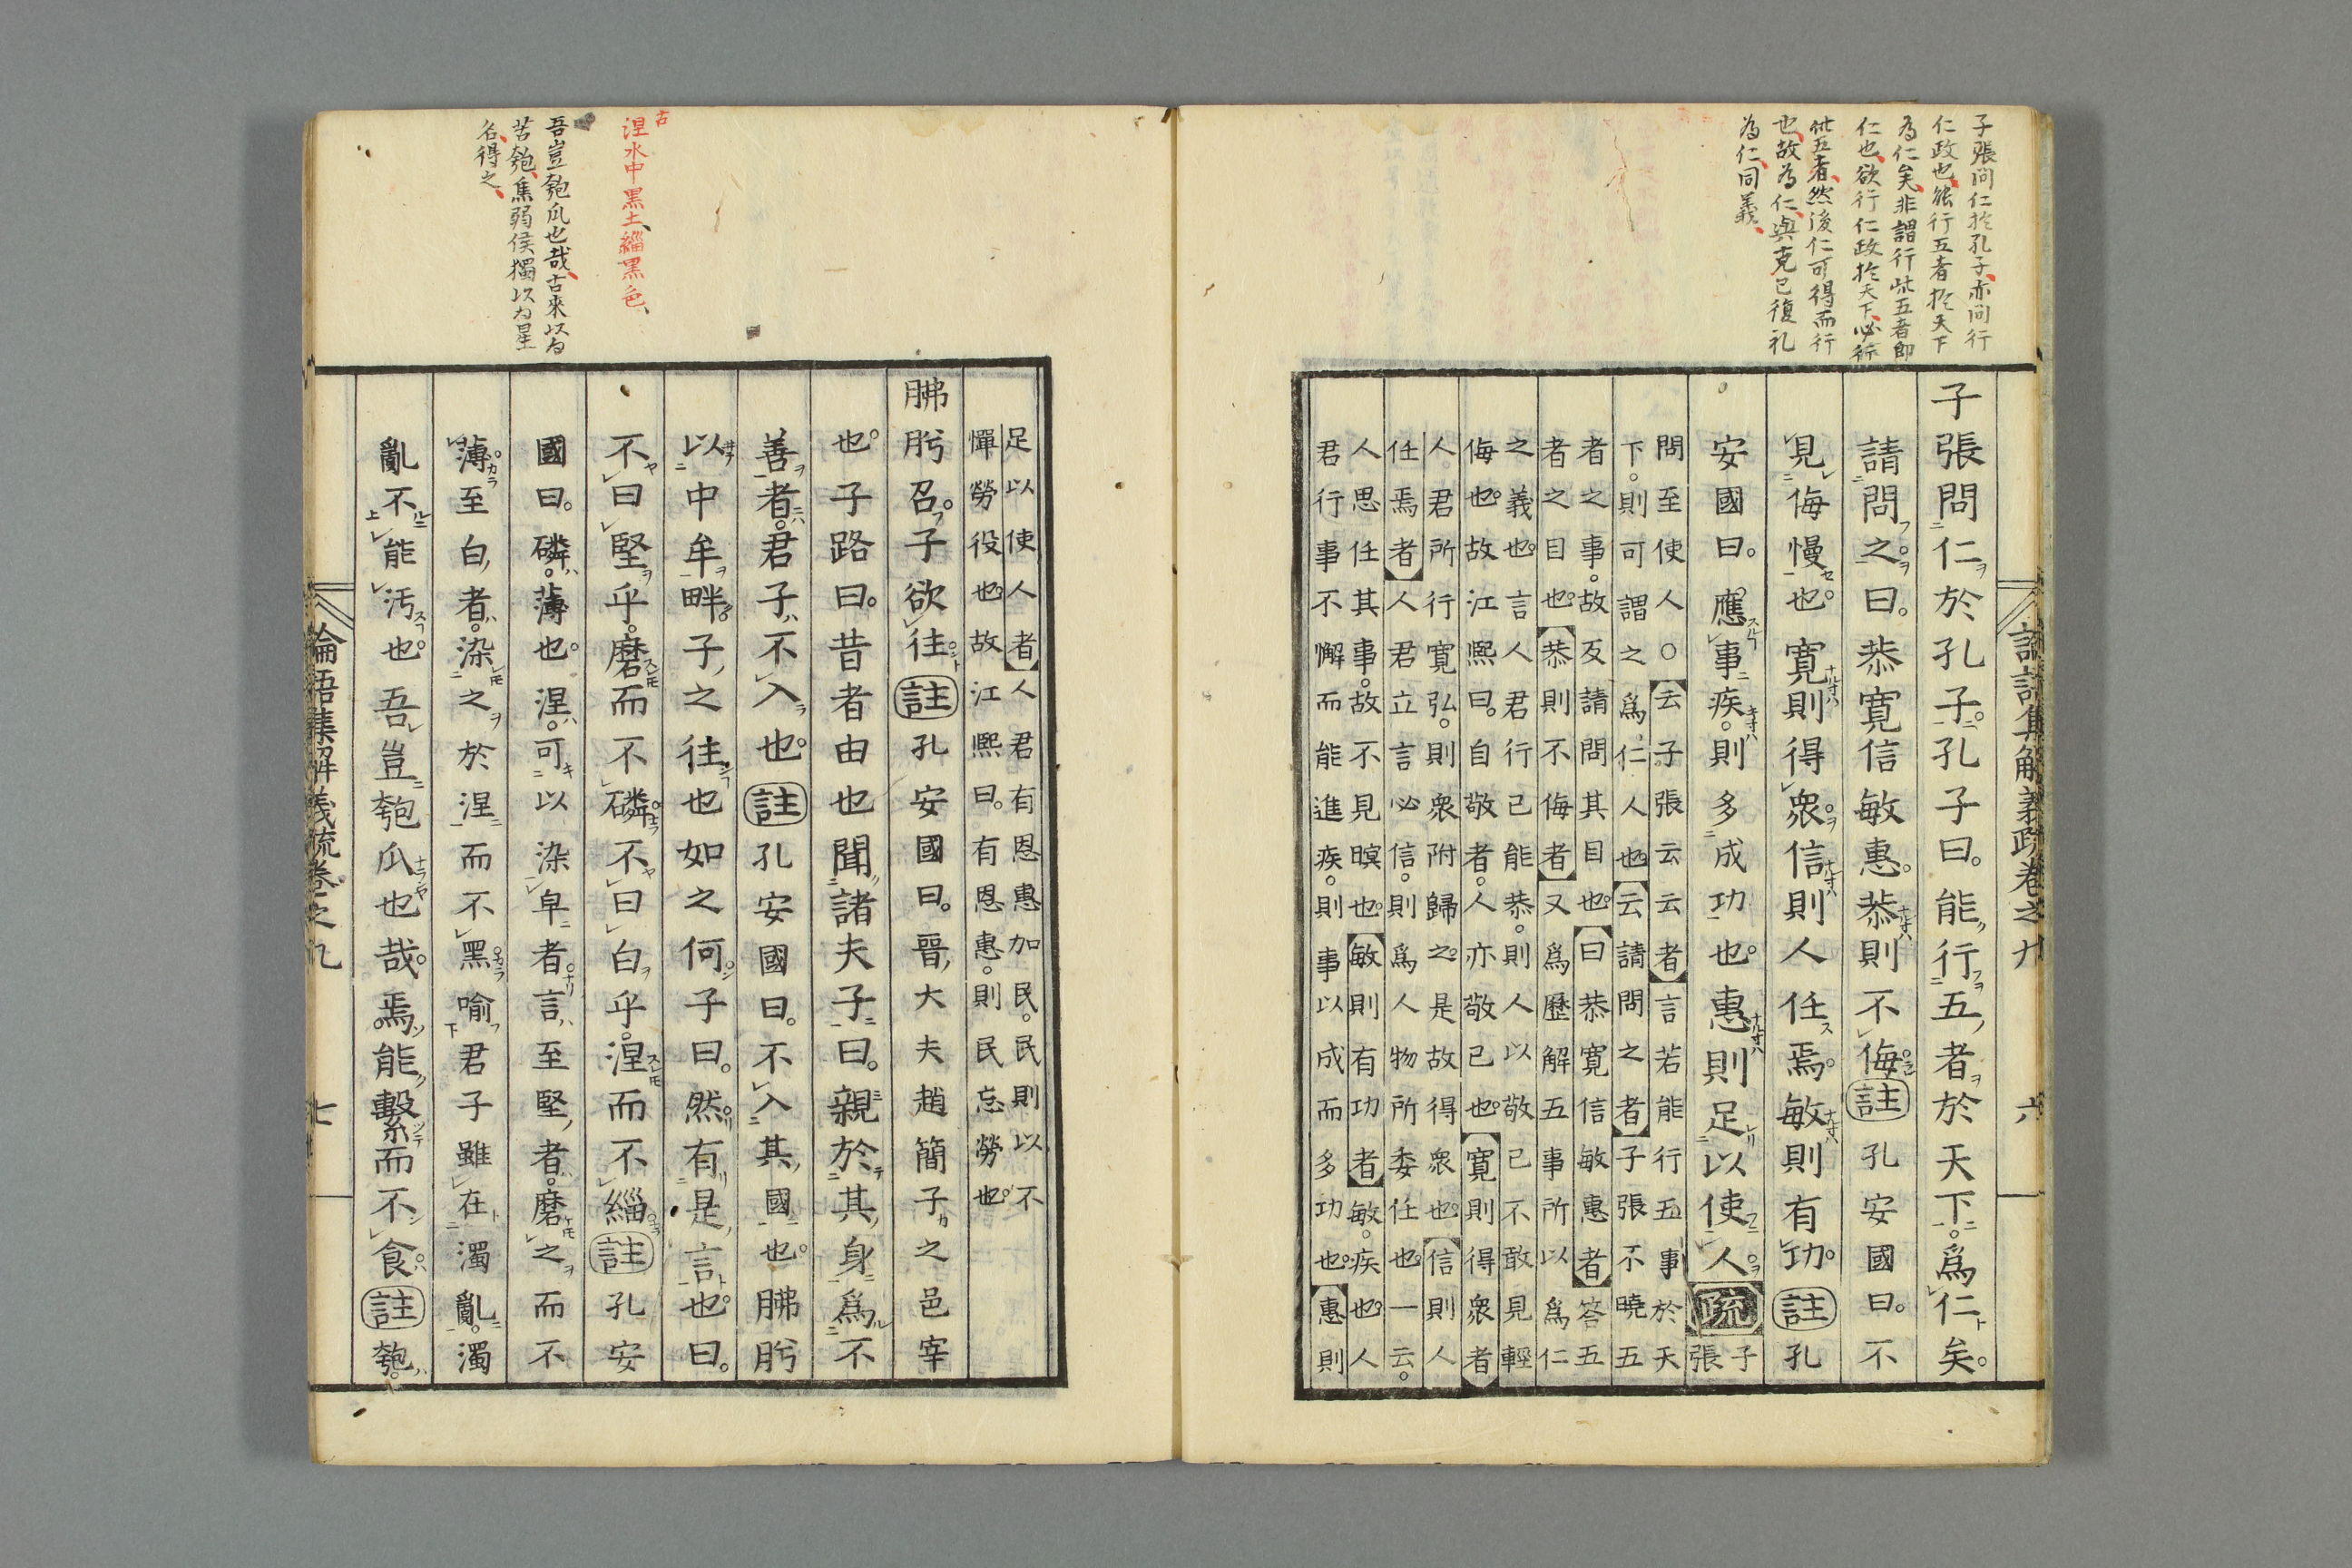 子張問仁於孔子亦問行
仁政也能行五者於天下
為仁矣非謂行此五者即
仁也欲行仁政於天下必行
此五者然後仁可得而行
也故為仁與克己復礼
為仁同義
論語集解義疏卷之九 六
子張問仁於孔子。孔子曰。能行五者於天下。爲仁矣。
請問之。曰。恭寬信敏惠。恭則不侮。註孔安國曰。不
見侮慢也。寬則得衆。信則人任焉。敏則有功。註孔
安國曰。應事疾。則多成功也。惠則足以使人。疏子張
問至使人○云子張云云者言若能行五事於天
下。則可謂之爲仁人也云請問之者子張不曉五
者之事。故反請問其目也。曰恭寬信敏惠者答五
者之目也。恭則不侮者又爲歷解五事所以爲仁
之義也。言人君行己能恭。則人以敬己不敢見輕
侮也。故江熙曰。自敬者。人亦敬己也。寬則得衆者
人。君所行寬弘。則衆附歸之。是故得衆也。信則人
任焉者人君立言必信。則爲人物所委任也。一云。
人思任其事。故不見暝也。敏則有功者敏。疾也。人
君行事不懈而能進疾。則事以成而多功也。惠則
古
涅水中黒土、緇黒色、
吾豈匏瓜也哉古來以為
苦匏、焦弱侯獨以為星
名、得之、
足以使人者人君有恩惠加民。民則以不
憚勞役也。故江熙曰。有恩惠。則民忘勞也。
胇肹召。子欲往。註孔安國曰。晉大夫趙簡子之邑宰
也。子路曰。昔者由也聞諸夫子。曰。親於其身爲不
善者。君子不入也。註孔安國曰。不入其國也。胇肹
以中牟畔。子之往也如之何。子曰。然。有是言也。曰。
不曰堅乎。磨而不磷。不曰白乎。涅而不緇。註孔安
國曰。磷。薄也。涅。可以染皁者。言至堅者。磨之而不
薄至白者。染之於涅而不黑。喻君子雖在濁亂。濁
亂不能汚也。吾豈匏瓜也哉。焉能繫而不食。註匏。
論語集解義疏卷之九 七